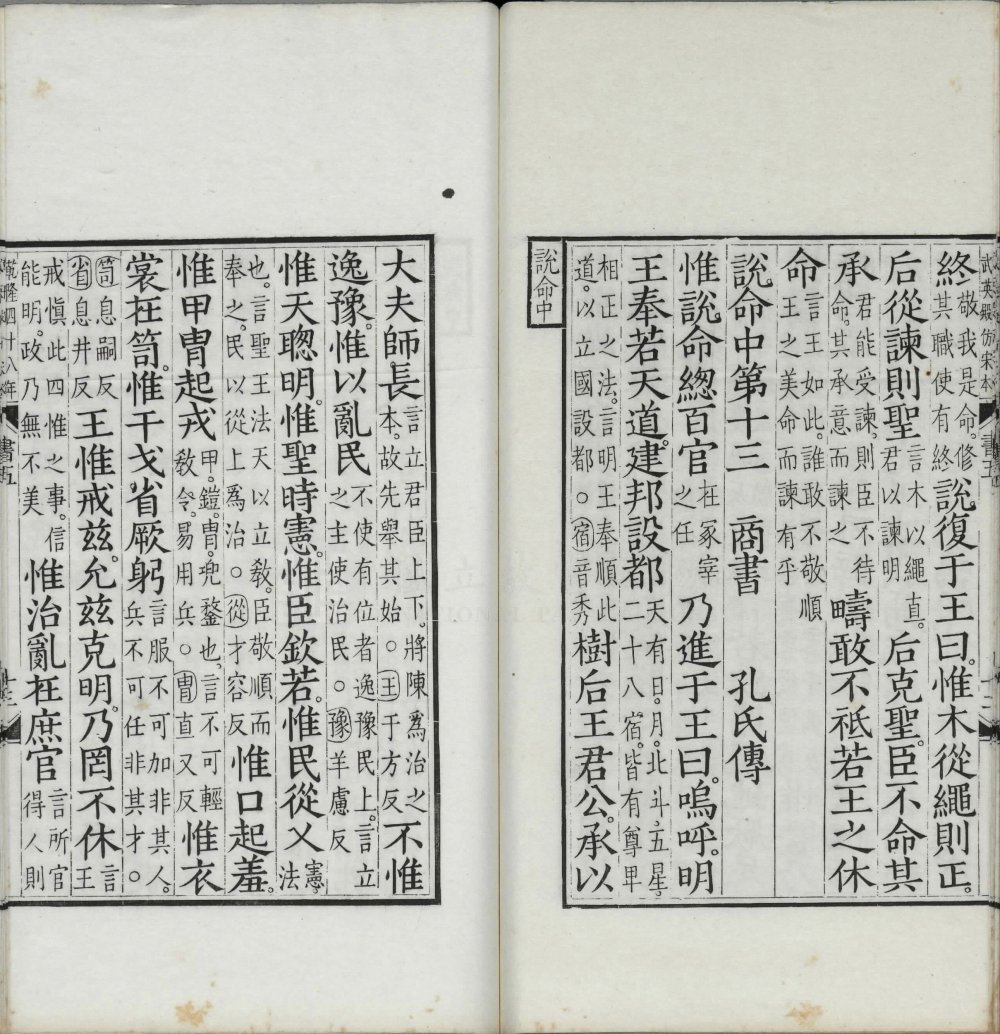 武英殿仿宋本 書五
終敬我是命。修其職使有終說復于王曰。惟木從繩則正。
后從諫則聖言木以繩直。君以諫明后克聖。臣不命其
承君能受諫。則臣不待命。其承意而諫之疇敢不祗若王之休
命言王如此。誰敢不敬順王之美命而諫有乎
說命中第十三 商書 孔氏傳
惟說命總百官在冢宰之任乃進于王曰。嗚呼。明
王奉若天道。建邦設都天有日。月。北斗。五星。二十八宿。皆有尊卑
相正之法。言明王奉順此道。以立國設都。○宿音秀樹后王君公。承以
說命中
大夫師長言立君臣上下。將陳為治之本。故先舉其始。○王于方反不惟
逸豫。惟以亂民不使有位者逸豫民上。言立之主使治民。○豫羊慮反
惟天聰明。惟聖時憲。惟臣欽若。惟民從乂憲。法
也。言聖王法天以立教。臣敬順而奉之。民以從上為治。○從才容反惟口起羞。
惟甲冑起戎甲。鎧。冑。兜鍪也。言不可輕教令。易用兵。○冑直又反惟衣
裳在笥。惟干戈省厥躬言服不可加非其人。兵不可任非其才。○
笥息嗣反省息井反王惟戒茲。允茲克明。乃罔不休言王
戒慎此四惟之事。信能明。政乃無不美惟治亂在庶官言所官得人則
乾隆四十八年 書五 十三